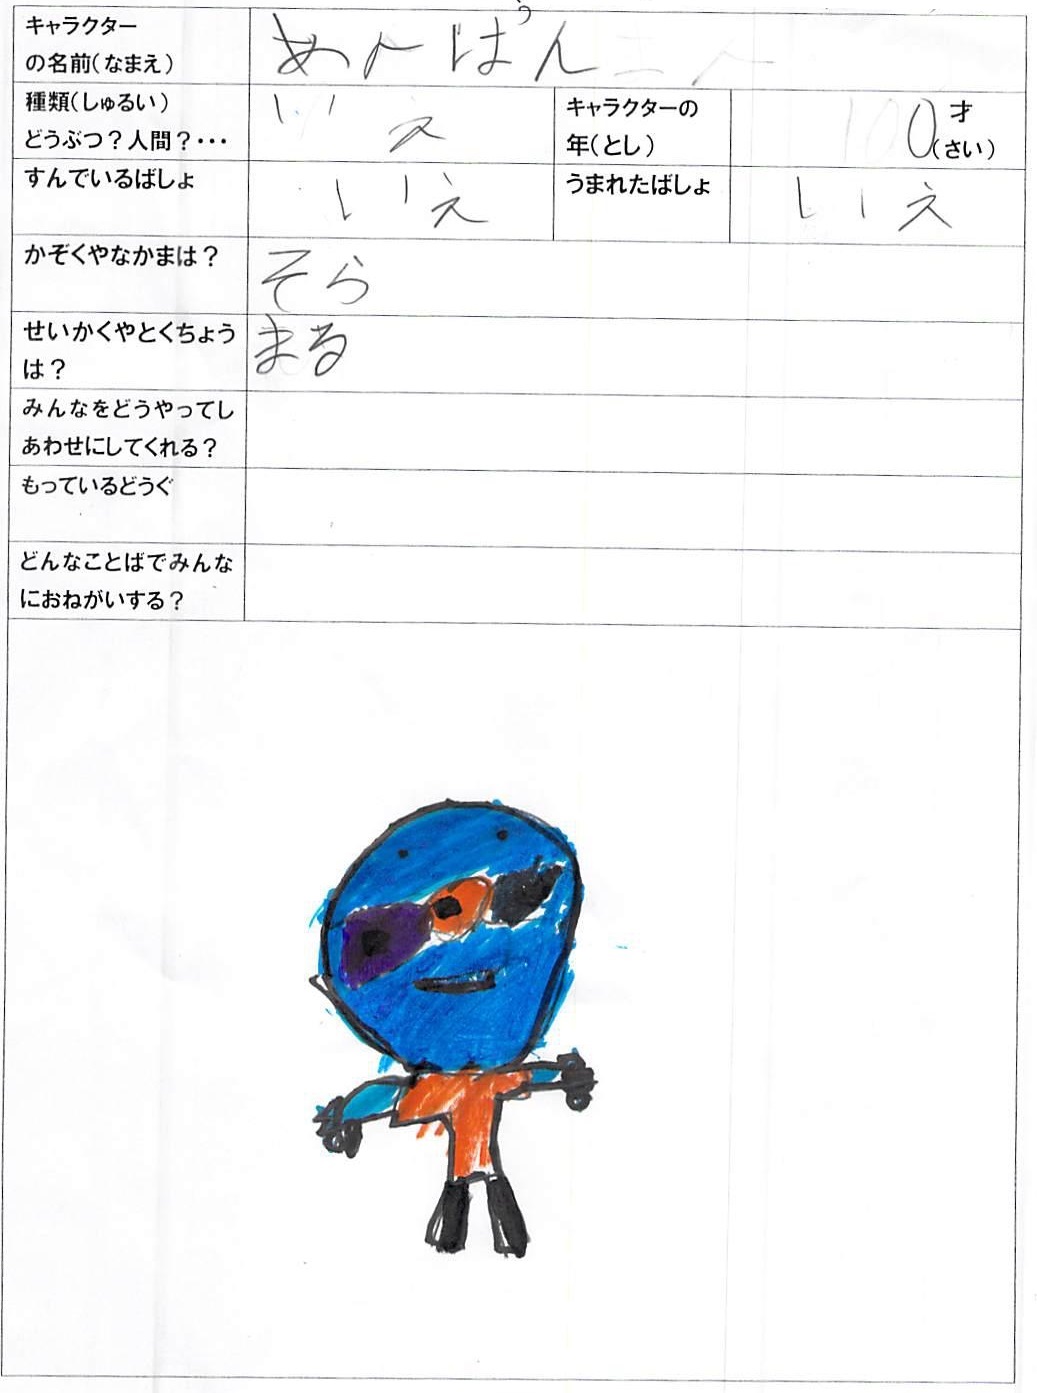 キャラクター
の名前(なまえ)
あんぱん
種類(しゅるい)
どうぶつ？人間？・・・
いえ
キャラクターの
年(とし)
100才
(さい)
すんでいるばしょ
いえ
うまれたばしょ
いえ
かぞくやなかまは？
そら
せいかくやとくちょう
は？
まる
みんなをどうやってし
あわせにしてくれる？
もっているどうぐ
どんなことばでみんな
におねがいする？